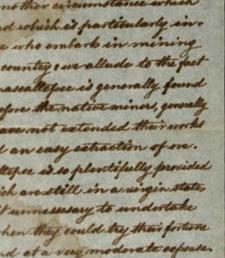 nother circumstance which
nd which is particularly in-
e who embark in mining
country; we allude to the fact
mascaltepec is generally found
efore the native miners, generally
ave not extended their works
d an easy extraction of ore.
ltepec is so plentifully provided
ich are still in a virgin state,
it unnecessary to undertake
when they could try their fortune
nd at a very moderate expense.